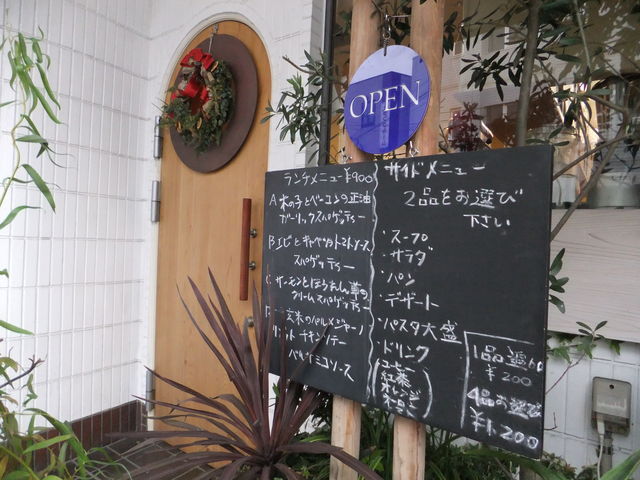 OPEN
ランチメニュー ¥900
A 木の子とベーコンの正油
ガーリックスパゲッティー
B エビとキャベツのトマトソース
スパゲッティー
C サーモンとほうれん草の
クリームスパゲッティー
玄米のパルメジャーノ
リゾット チキンソテー
バルサミコソース
サイドメニュー
2品をお選び
下さい
・スープ
・サラダ
・パン
・デザート
・パスタ大盛
・ドリンク
コーヒー
紅茶
オレンジ
ウーロン
1品
¥200
4品お選び
¥1,200